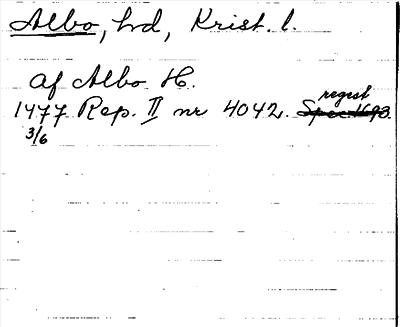 Albo, hd, Krist. l.
af Albo H.
regest
1477 Rep. II nr 4042.
3/6